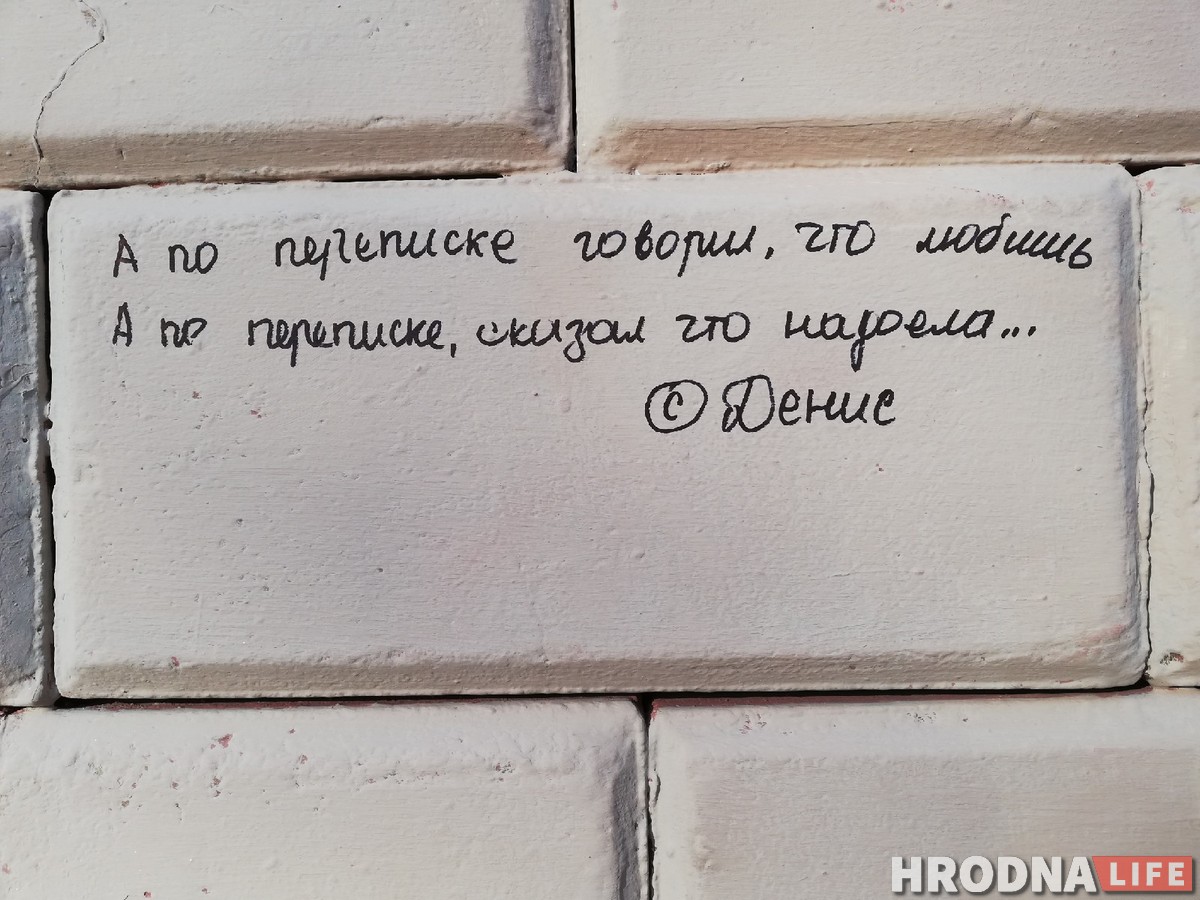 А по переписке говорил, что любишь
А по переписке, сказал что надоела...
© Денис
HRODNA LIFE